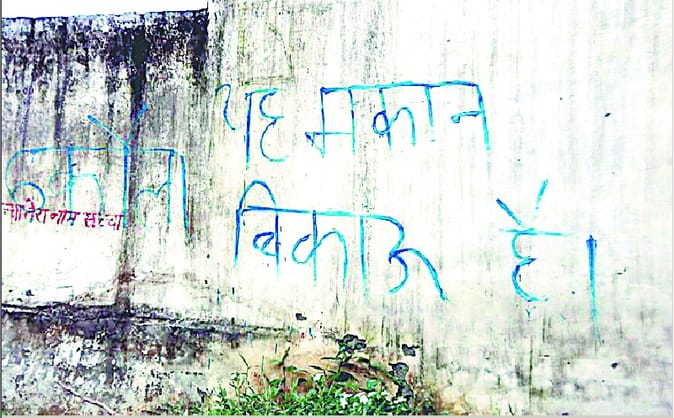 यह मकान
बिकाऊ है।
तेरा नाम सच्चा